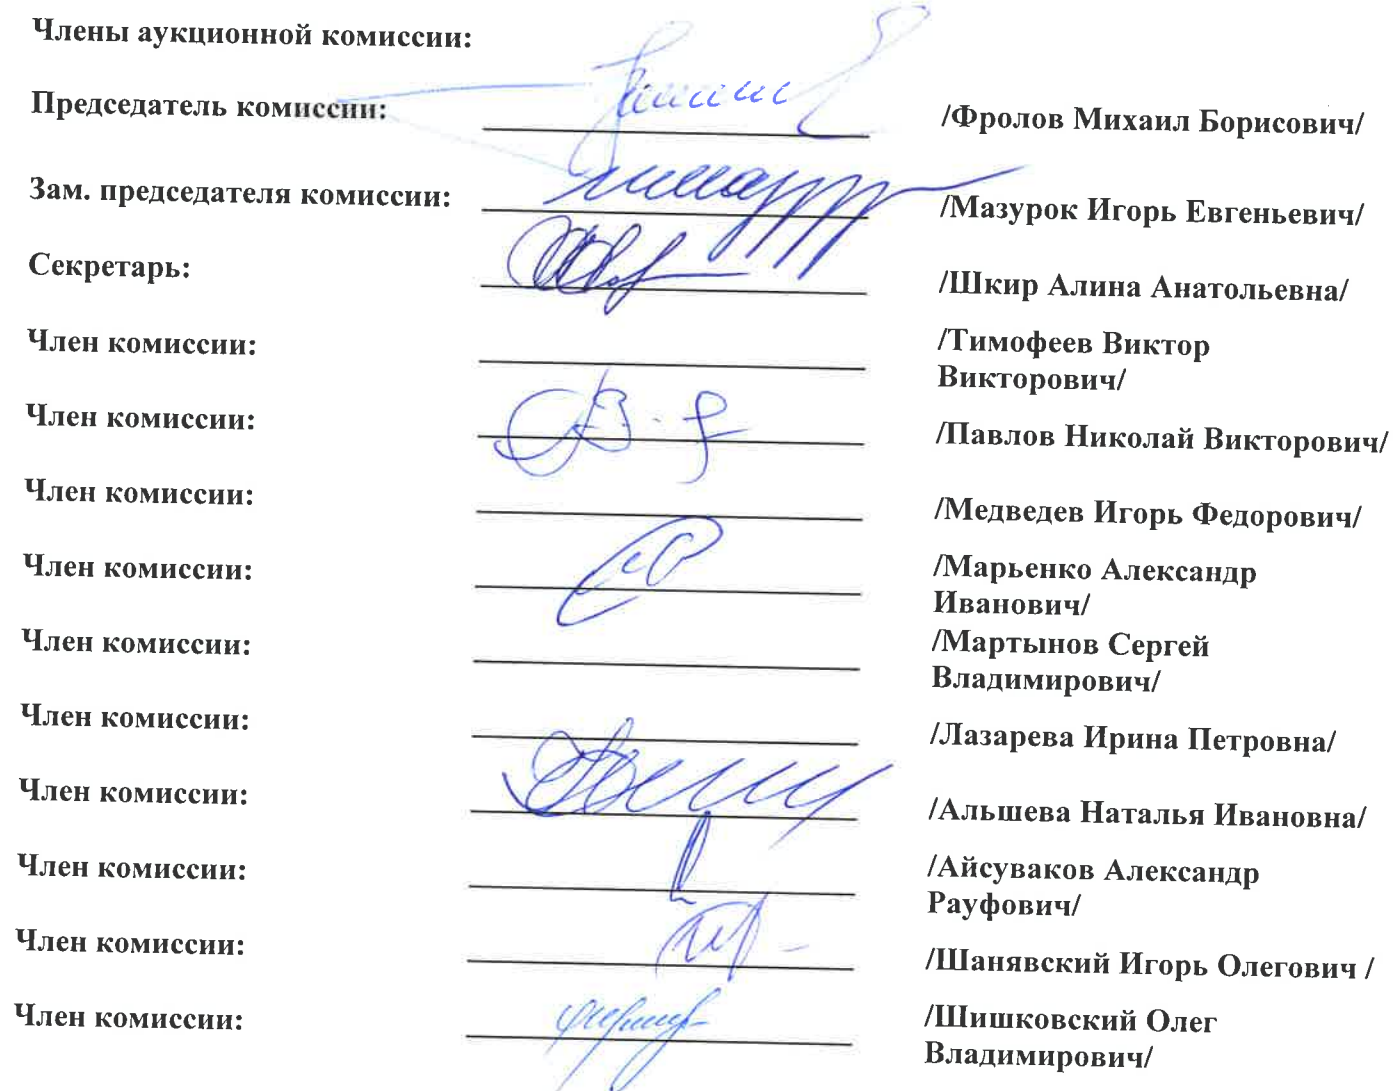 Члены аукционной комиссии:
Председатель комиссии: /Фролов Михаил Борисович/
Зам. председателя комиссии: /Мазурок Игорь Евгеньевич/
Секретарь: /Шкир Алина Анатольевна/
Член комиссии: /Тимофеев Виктор
Викторович/
Член комиссии: /Павлов Николай Викторович/
Член комиссии: /Медведев Игорь Федорович/
Член комиссии: /Марьенко Александр
Иванович/
Член комиссии: /Мартынов Сергей
Владимирович/
Член комиссии: /Лазарева Ирина Петровна/
Член комиссии: /Альшева Наталья Ивановна/
Член комиссии: /Айсуваков Александр
Рауфович/
Член комиссии: /Шанявский Игорь Олегович /
Член комиссии: /Шишковский Олег
Владимирович/